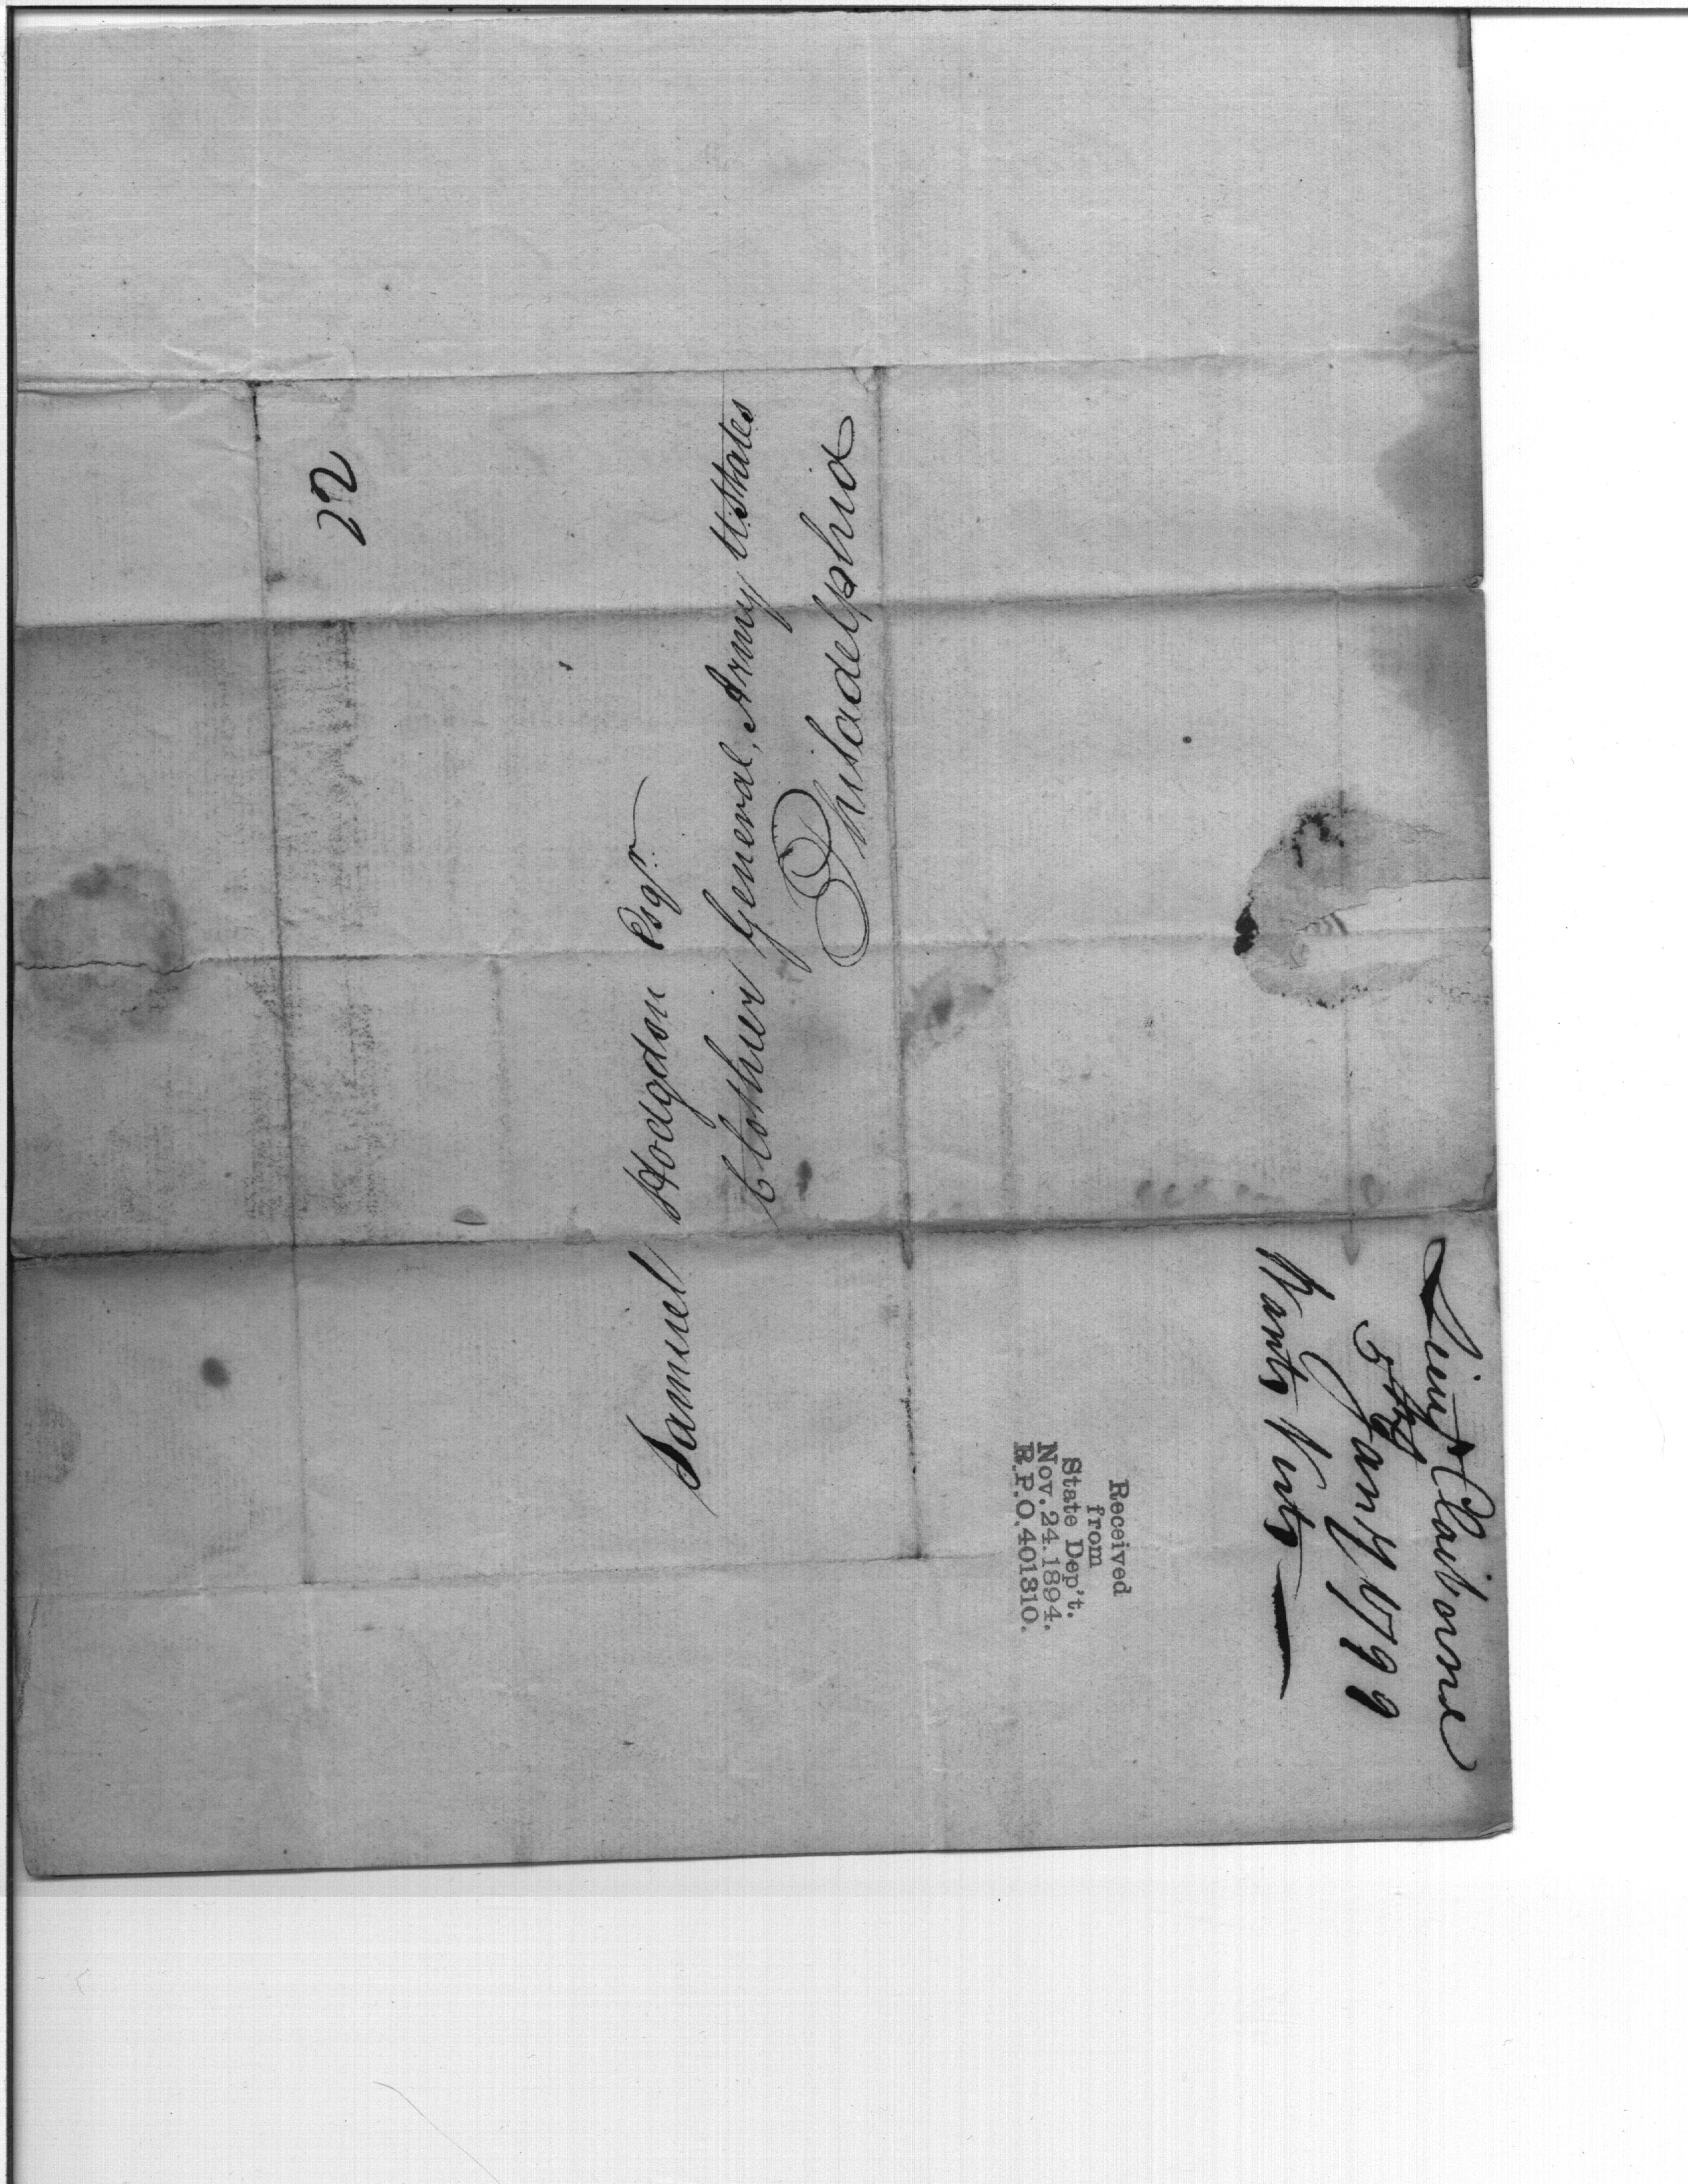 22
Samuel Hodgdon Esqr.
Clothier General, Army UStates
Philadelphia
Received
from
State Dep't.
Nov. 24. 1894.
R.P.O. 401310.
Lieut Claiborne
5th Jany 1799
Wants Vests